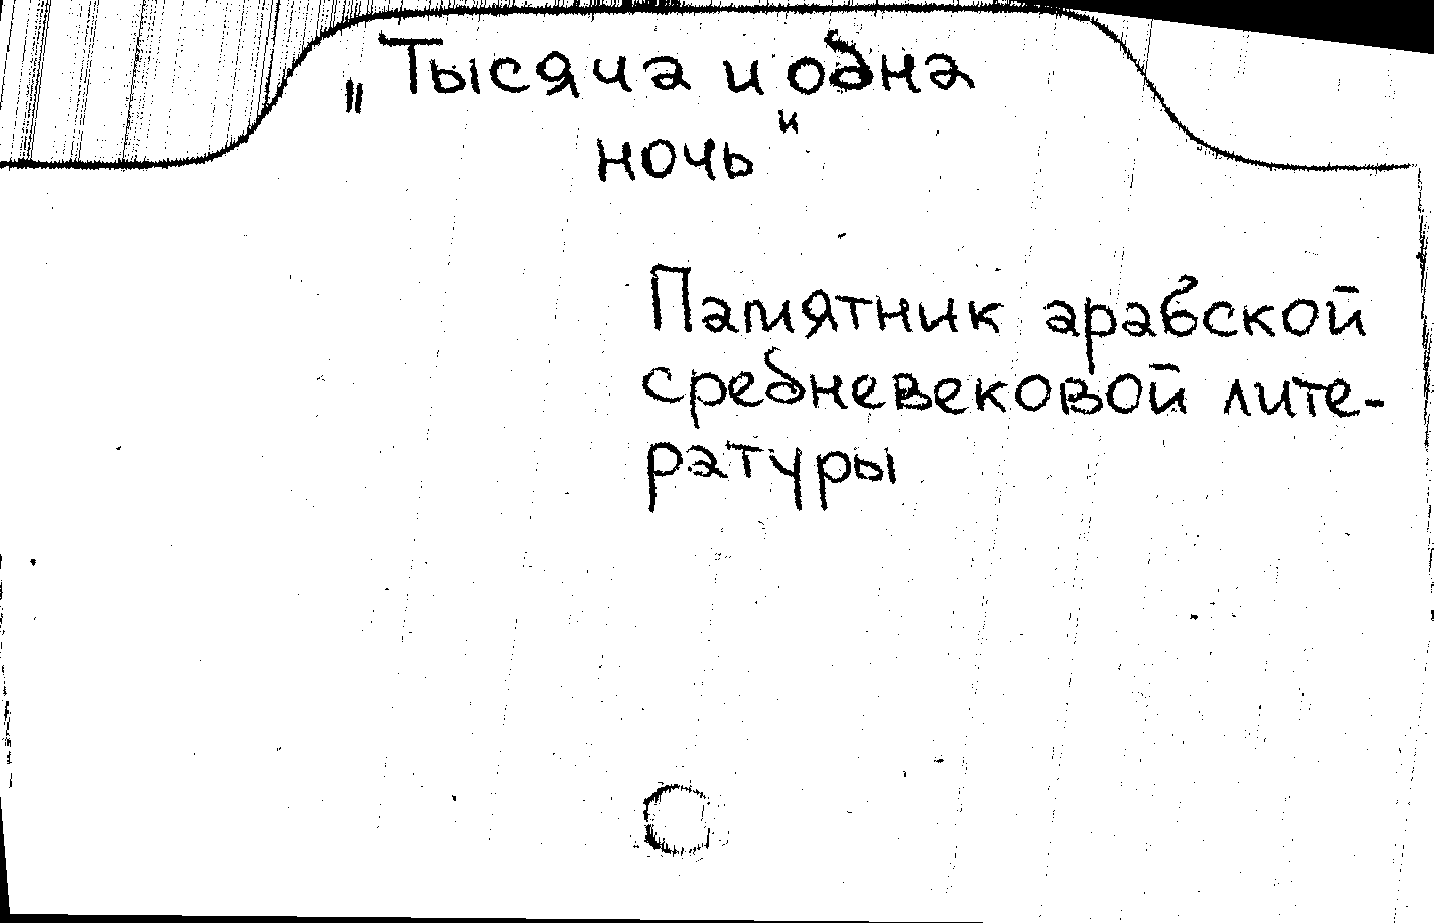 „Тысяча и одна
ночь"
Памятник арабской
средневековой лите-
ратуры